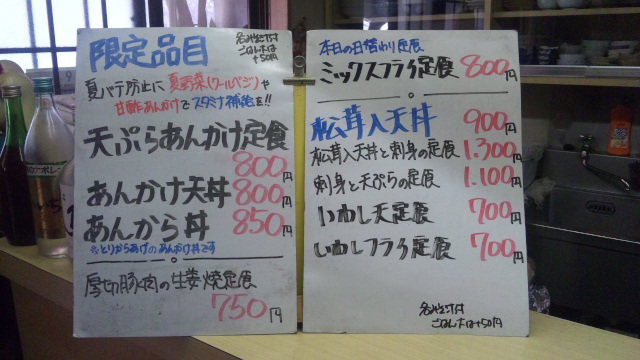 限定品目
各みそ汁付
ごはん大は
+50円
夏バテ防止に夏野菜(クールベジ)や
甘酢あんかけでスタミナ補給を!!
天ぷらあんかけ定食
800円
あんかけ天丼 800円
あんから丼 850円
※とりからあげのあんかけ丼です
厚切豚肉の生姜焼定食
750円
本日の日替わり定食
ミックスフライ定食 800円
松茸入天丼 900円
松茸入天丼と刺身の定食 1.300円
刺身と天ぷらの定食 1.100円
いわし天定食 700円
いわしフライ定食 700円
各みそ汁付
ごはん大は+50円